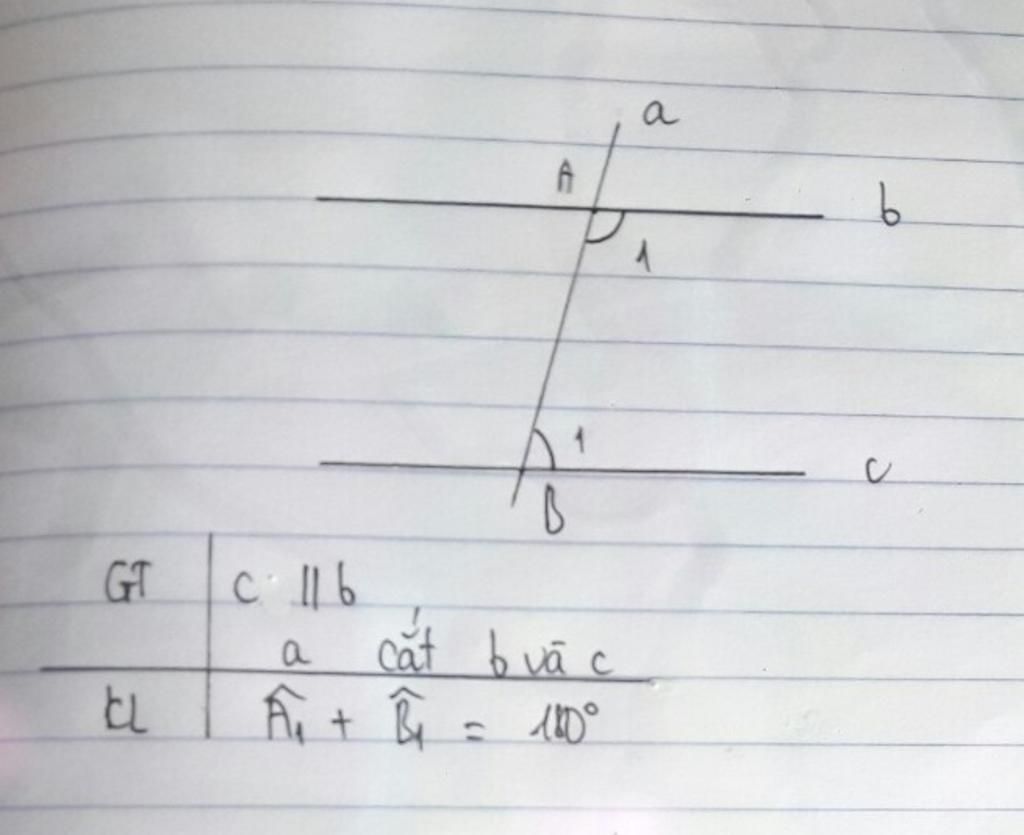 a
A
b
1
1
c
B
GT c // b
a cắt b và c
KL Â₁ + B̂₁ = 180°